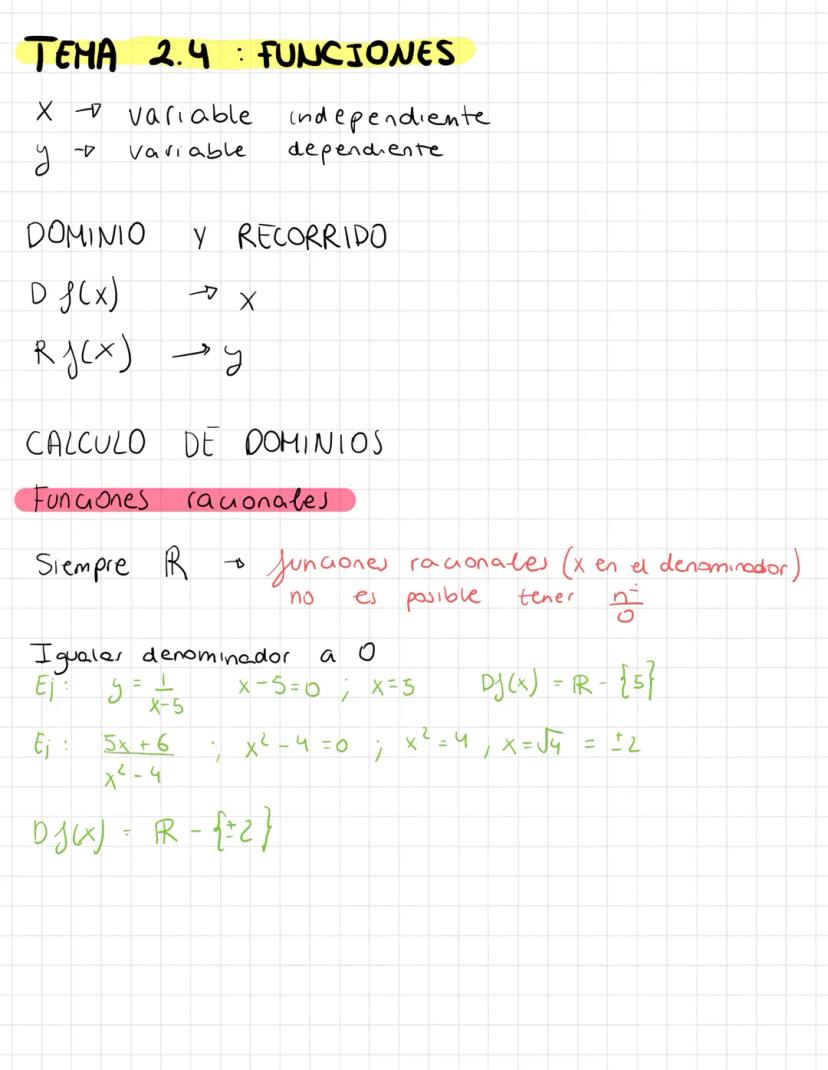 TEMA 2.4 : FUNCIONES
x → variable independiente
y → variable dependiente
DOMINIO Y RECORRIDO
D f(x) → x
R f(x) → y
CALCULO DE DOMINIOS
Funciones racionales
Siempre ℝ → funciones racionales (x en el denominador)
no es posible tener nº/0
Igualar denominador a 0
Ej: y = 1/(x-5) x-5=0 ; x=5 Df(x) = ℝ - {5}
Ej: (5x+6)/(x²-4) ; x²-4=0 ; x²=4 ; x=√4 = ±2
Df(x) = ℝ - {±2}